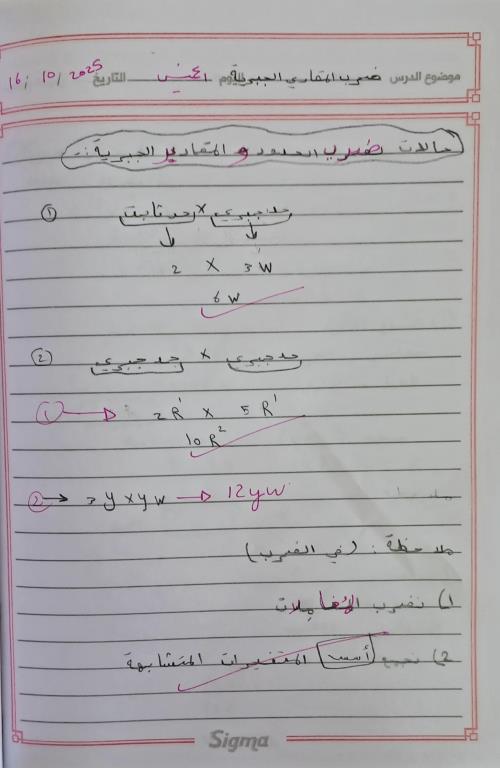 موضوع الدرس ضرب المقادير الجبرية اليوم الخميس التاريخ 16/10/2025
حالات ضرب الحدود و المقادير الجبرية :-
① حد جبري × حد ثابت
2 × 3W¹
6W
② حد جبري × حد جبري
① → 2R¹ × 5R¹
10R²
② → 3y × yw → 12yw
ملاحظة : (في الضرب)
1) نضرب المعاملات
2) نجمع أسس المتغيرات المتشابهة
Sigma